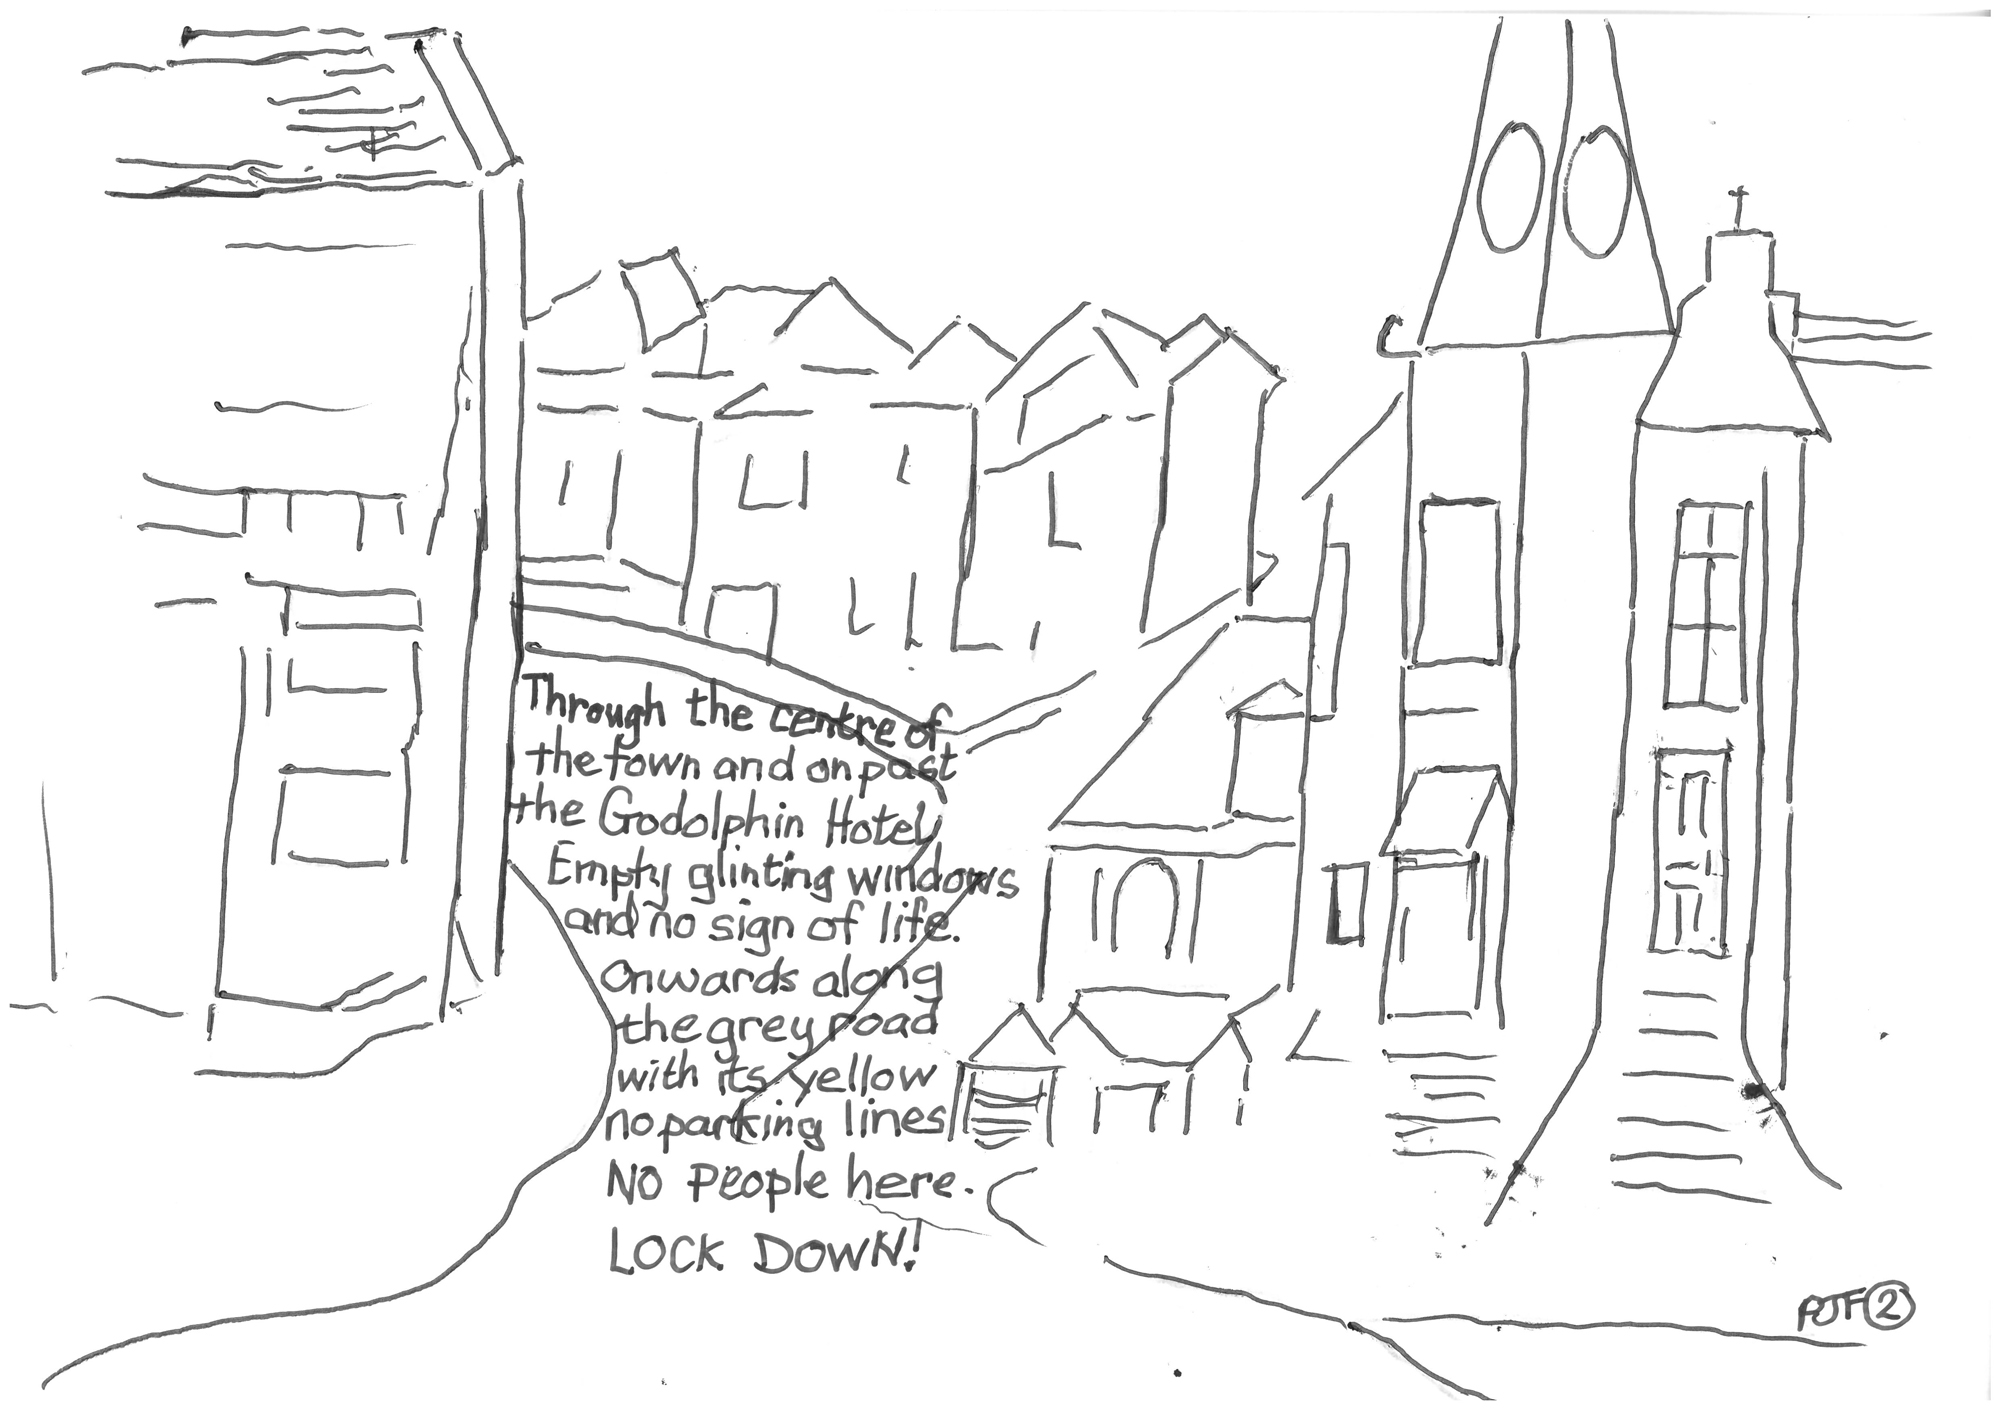 Through the centre of
the town and on past
the Godolphin Hotel
Empty glinting windows
and no sign of life.
Onwards along
the grey road
with its yellow
no parking lines
NO People here.
LOCK DOWN!
PJF 2